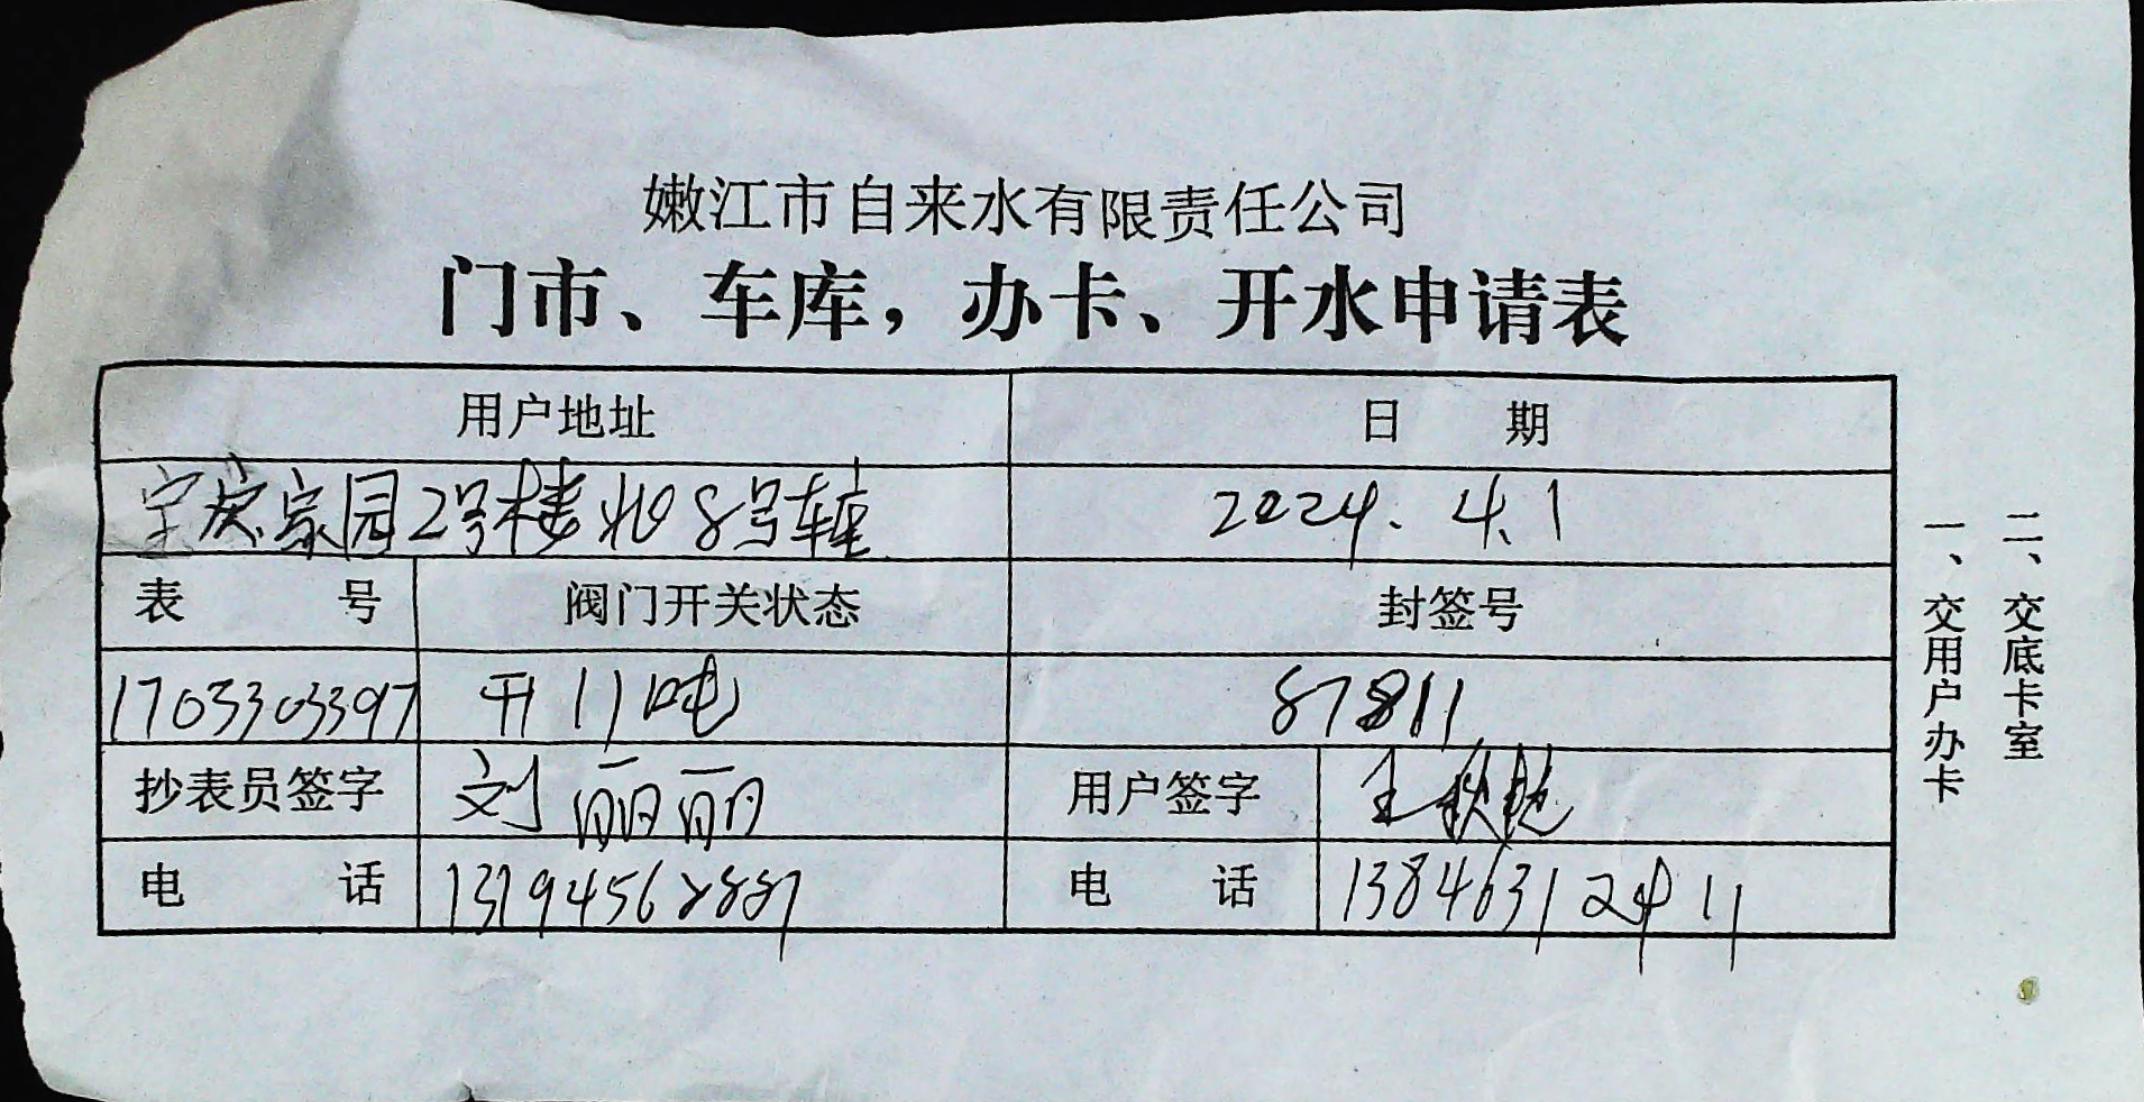 嫩江市自来水有限责任公司
门市、车库，办卡、开水申请表
用户地址 日 期
家园2号楼北8号车库 2024.4.1
表 号 阀门开关状态 封签号
1703303397 开11吨 87811
抄表员签字 刘丽丽 用户签字 王秋艳
电 话 13194562887 电 话 13846312411
一、交用户办卡
二、交底卡室